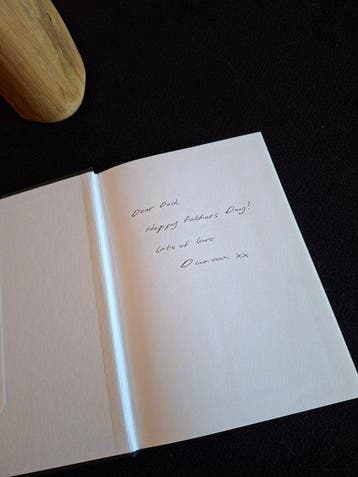 Dear Dad
Happy Fathers Day!
Lots of love
Duncan xx